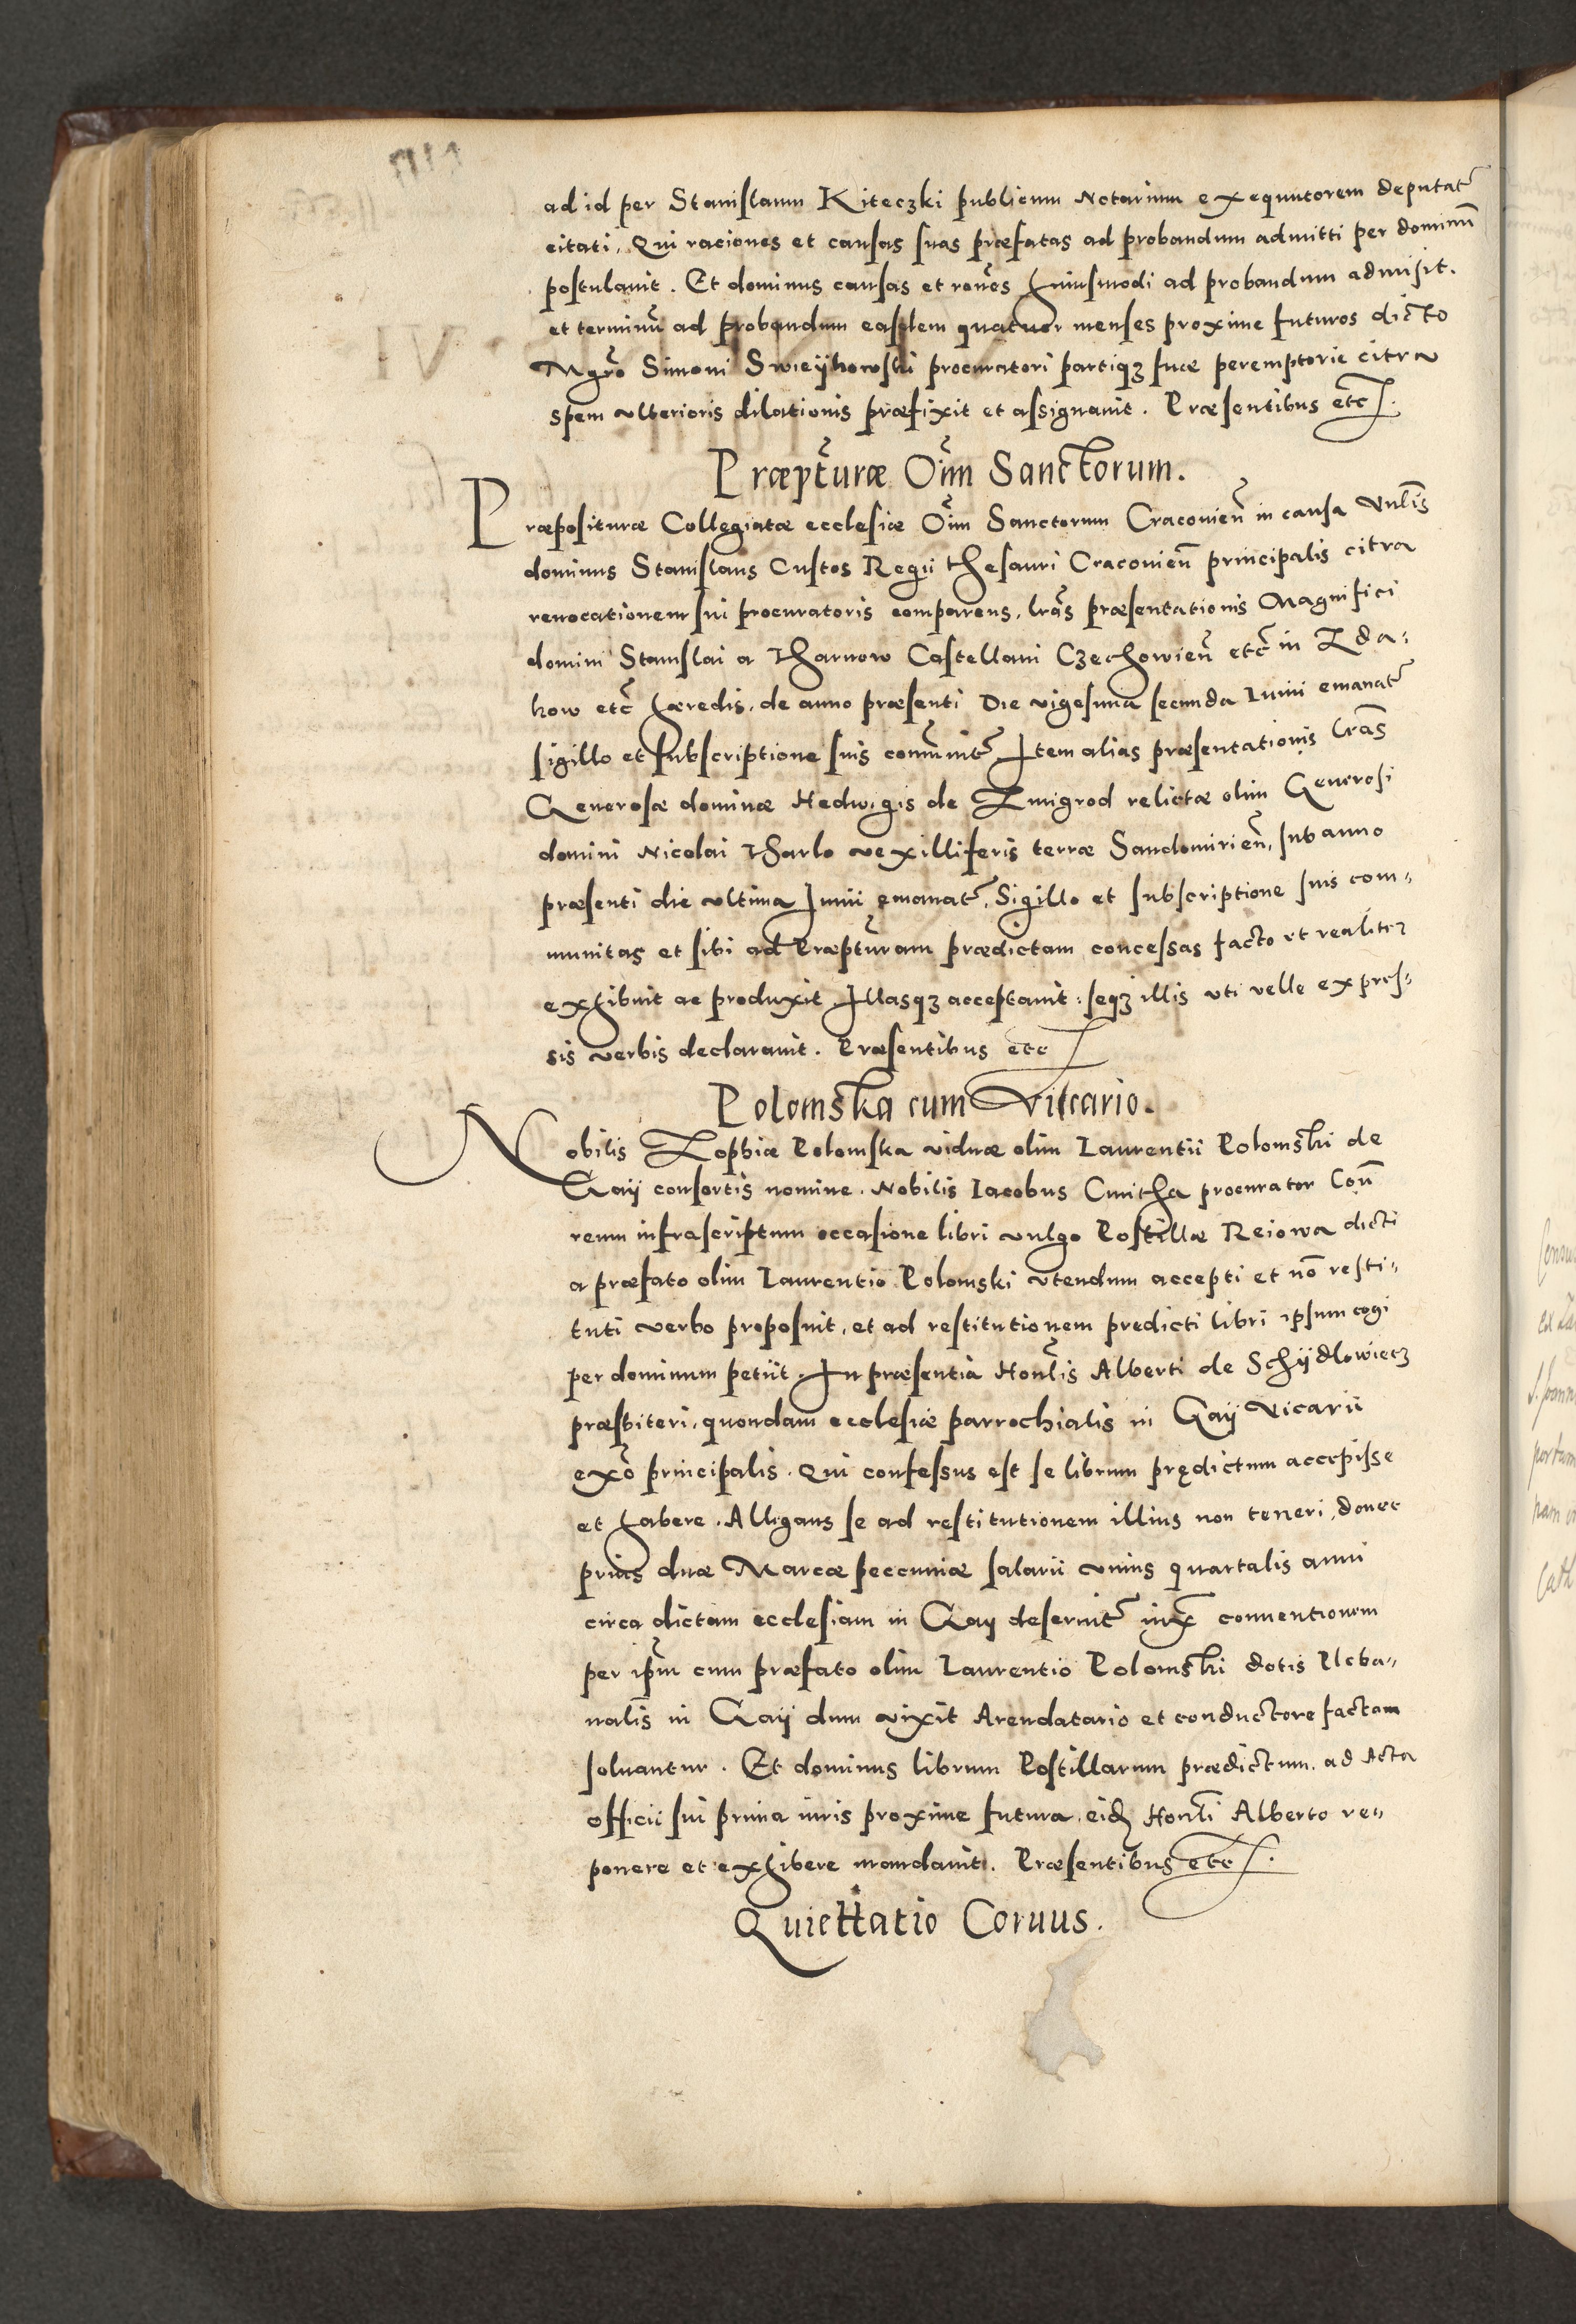 ad id per Stanislaum Kiteczki publicum Notarium exequutorem deputat̃
citati. Qui raciones et causas suas præfatas ad probandum admitti per dominũ
postulauit. Et dominus causas et rões huiusmodi ad probandum admisit.
et terminũ ad probandum easdem quatuor menses proxime futuros dicto
Mgrõ Simoni Swieijkowski procuratori partiqȝ suæ peremptorie citra
spem vlterioris dilationis præfixit et assignauit. Præsentibus etc.
Præptũræ Oĩm Sanctorum.
Præposituræ Collegiatæ ecclesiæ Oĩm Sanctorum Craconieñ in causa Vnlĩs
dominus Stanislaus Custos Regii thesauri Craconieñ principalis citra
reuocationem sui procuratoris comparens, lrãs præsentationis Magnifici
domini Stanislai a Tharnow Castellani Czechowieñ etc̃ in Zda⸗
kow etc̃ hæredis, de anno præsenti Die vigesima secunda Iunii emanat̃
sigillo et subscriptione suis com̃unit̃ Item alias præsentationis lrãs
Generosæ dominæ Hedwigis de Zmigrod relictæ olim Generosi
domini Nicolai Tharlo vexilliferis terræ Sandomirieñ, sub anno
præsenti die vltima Iunii emanat̃, Sigillo et subscriptione suis com⸗
munitas et sibi ad Præptũram prædictam concessas facto et realiter
exhibuit ac produxit. Illasqȝ acceptauit: seqȝ illis vti velle expres⸗
sis verbis declarauit. Præsentibus etc
Polomska cum Vitcario.
Nobilis Zophiæ Polomska viduæ olim Laurentii Polomski de
Gaij consortis nomine. Nobilis Iacobus Cmitha procurator Coñ
reum infrascriptum occasione libri vulgo Postillæ Reiowa dicti
a præfato olim Laurentio Polomski vtendum accepti et nõ resti⸗
tuti verbo proposuit, et ad restitutionem predicti libri ipsum cogi
per dominum petiit. In præsentia Honlĩs Alberti de Schijdlowiecz
præsbiteri, quondam ecclesiæ parrochialis in Gaij Vicarii
exõ principalis. Qui confessus est se librum prędictum accepisse
et habere. Alligans se ad restitutionem illius non teneri, donec
prius duæ Marcæ peccuniæ salarii vnius quartalis anni
circa dictam ecclesiam in Gay deseruit̃ iux̃ conuentionem
per ipm̃ cum præfato olim Laurentio Polomski dotis Pleba⸗
nalis in Gaij dum vixit Arendatario et conductore factam
soluantur. Et dominus librum Postillarum prædictum, ad Acta
officii sui prima iuris proxime futura, eid Honlĩ Alberto re⸗
ponere et exhibere mandauit. Præsentibus etc.
Quiettatio Coruus.